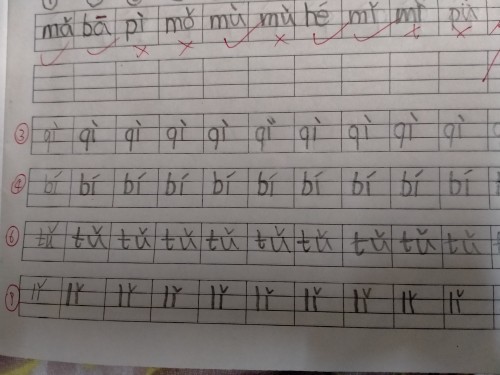 mǎ bā pì mǒ mù mù bé mǐ mì pǔ
③ qì qì qì qì qì qì qì qì qì qì
bí bí bí bí bí bí bí bí bí bí
⑥ tǔ tǔ tǔ tǔ tǔ tǔ tǔ tǔ tǔ tǔ
lǐ lǐ lǐ lǐ lǐ lǐ lǐ lǐ lǐ lǐ